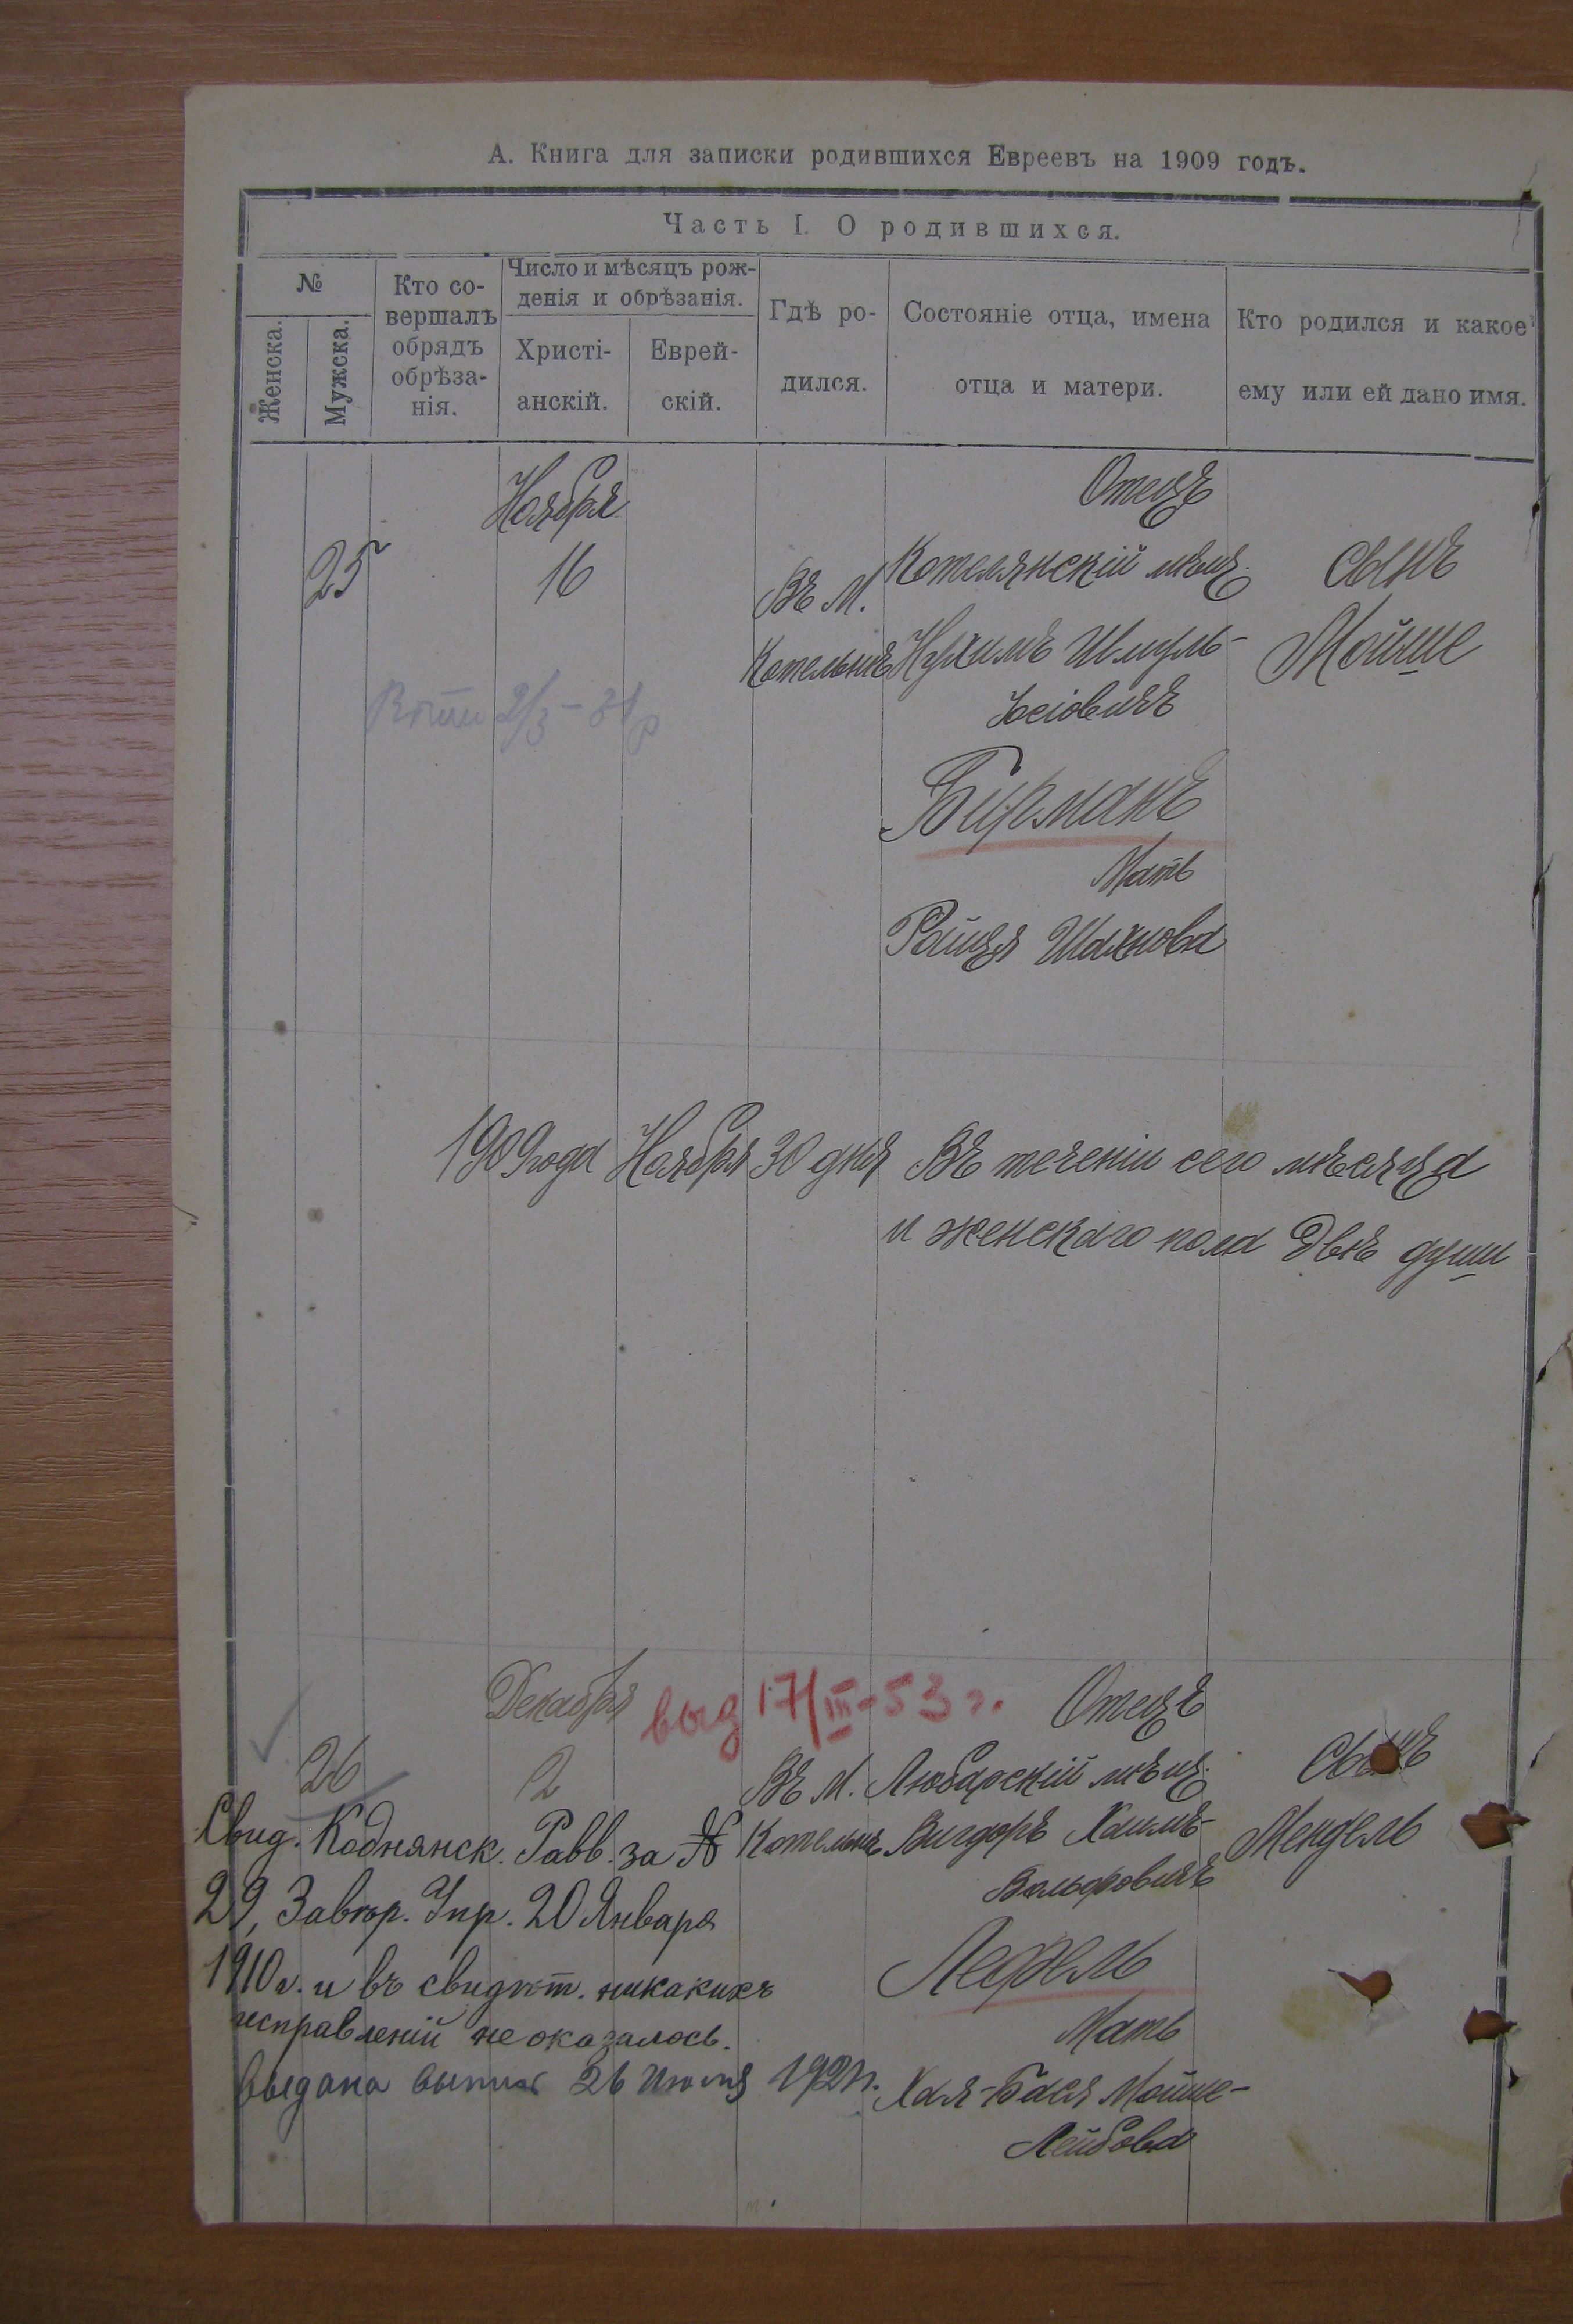 А. Книга для записки родившихся Евреевъ на 1909 годъ.
Часть I. О родившихся.
№
Женска.
Мужска.
Кто со-
вершалъ
обрядъ
обрѣза-
нія.
Число и мѣсяцъ рож-
денія и обрѣзанія.
Христі-
анскій.
Еврей-
скій.
Гдѣ ро-
дился.
Состояніе отца, имена
отца и матери.
Кто родился и какое
ему или ей дано имя.
Ноября
25
16
Въ М.
Котельнѣ
Отецъ
Котелянскій мѣщ.
Нухимъ Шмуль-
Іосіовичъ
Бирманъ
Мать
Райця Шахнова
Сынъ
Мойше
2/3 - 31
1909 года Ноября 30 дня Въ теченіи сего мѣсяца
и женскаго пола Двѣ души
Декабря
выд 17/III - 53 г.
26
2
Въ М.
Котельнѣ
Отецъ
Любарскій мѣщ.
Вигдоръ Хаимъ-
Вольфовичъ
Лефель
Мать
Хая-Бася Мойше-
Лейбова
Сынъ
Мендель
Свид. Коднянск. Равв. за №
29, Завѣр. Упр. 20 Января
1910 г. и въ свидѣт. никакихъ
исправленій не оказалось.
Выдана 26 Июля 192